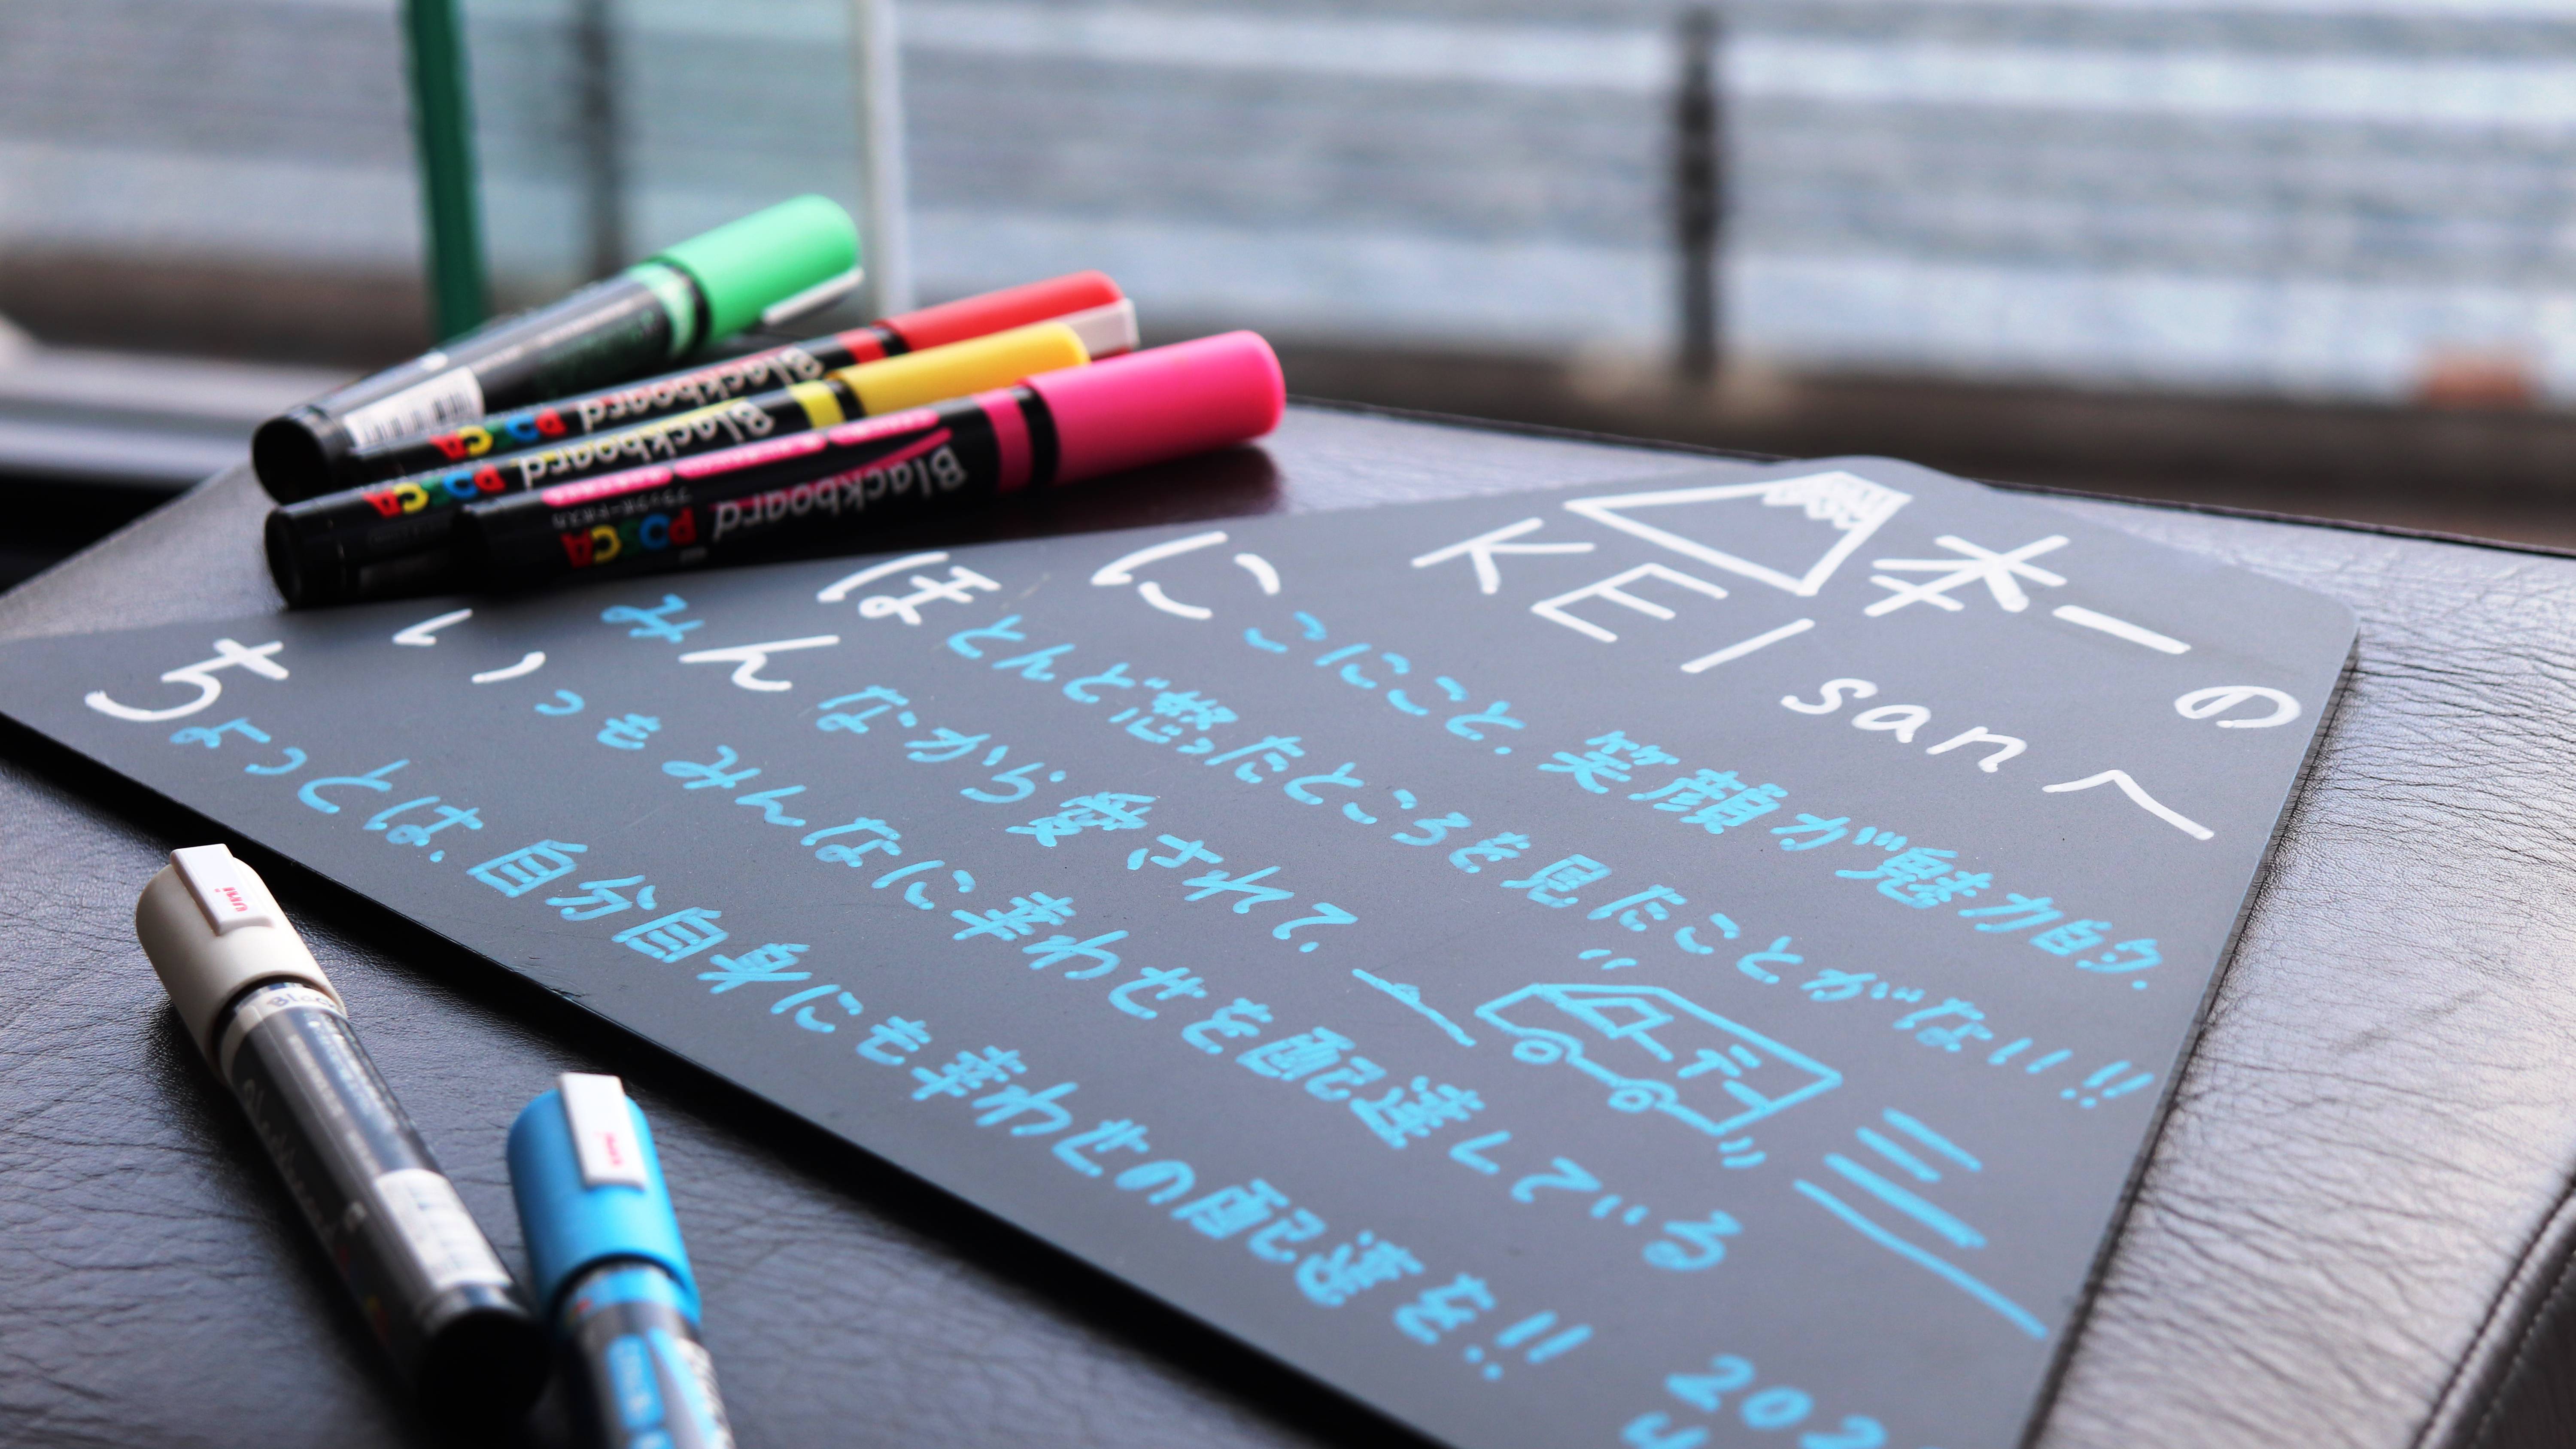 本一の
KEI san へ
にこにこと、笑顔が魅力的、
ほとんど怒ったところを見たことがない!!
みんなから愛されて、
いつもみんなに幸わせを配達している
ちょっとは、自分自身にも幸わせの配達を!!
202
POSCA Blackboard
POSCA Blackboard
POSCA Blackboard
ブラックボードポスカ
uni